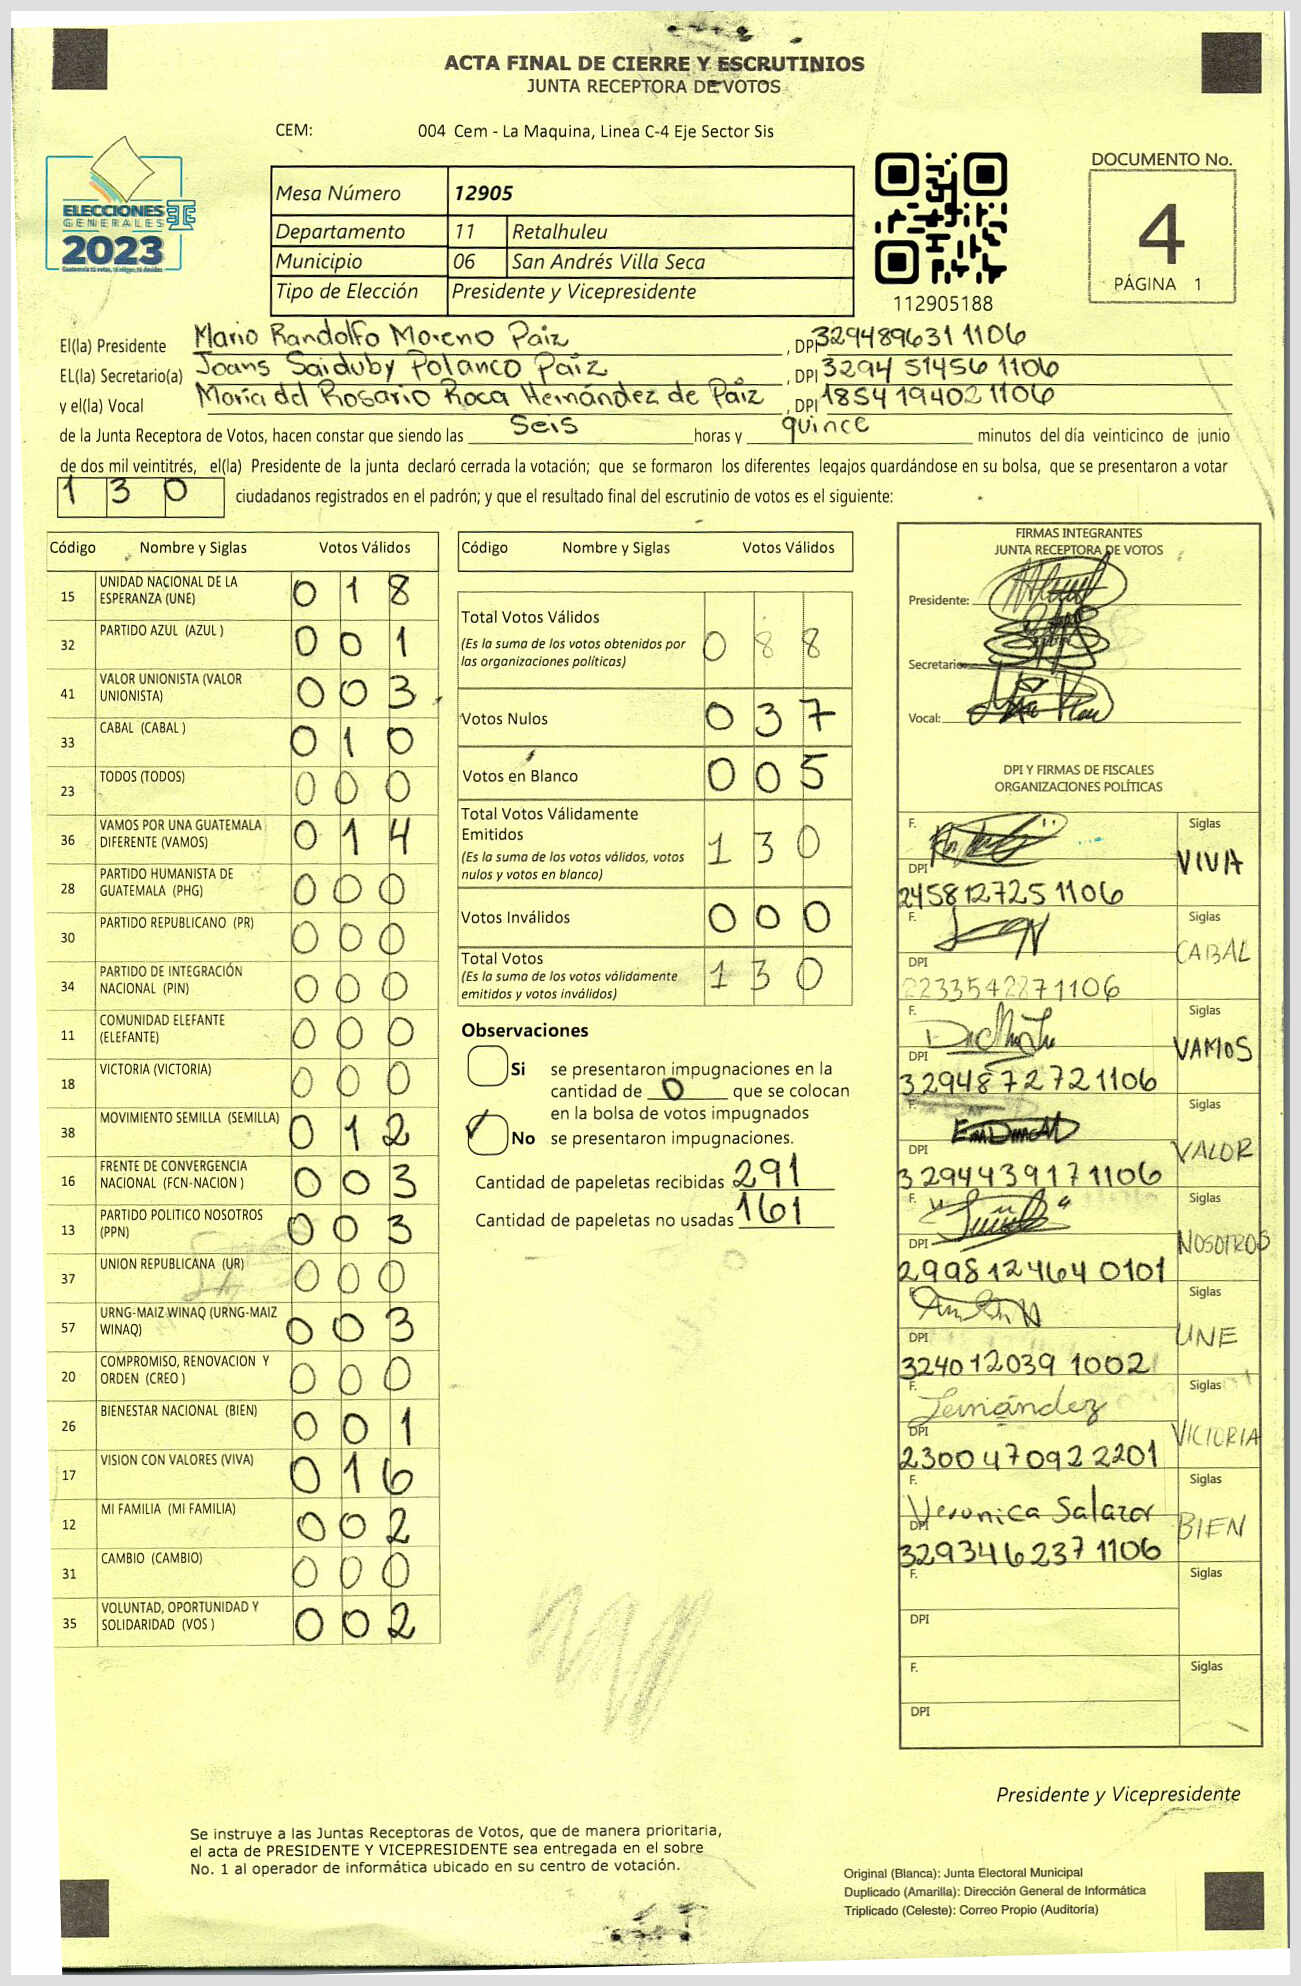 ACTA FINAL DE CIERRE Y ESCRUTINIOS
JUNTA RECEPTORA DE VOTOS
CEM: 004 Cem - La Maquina, Linea C-4 Eje Sector Sis
ELECCIONES
GENERALES
2023
Mesa Número 12905
Departamento 11 Retalhuleu
Municipio 06 San Andrés Villa Seca
Tipo de Elección Presidente y Vicepresidente
112905188
DOCUMENTO No.
4
PÁGINA 1
El(la) Presidente Mario Randolfo Moreno Paiz, DPI 3294896311106
EL(la) Secretario(a) Joans Saiduby Polanco Paiz, DPI 3294 51456 1106
y el(la) Vocal María del Rosario Roca Hernández de Paiz, DPI 1854194021106
de la Junta Receptora de Votos, hacen constar que siendo las seis horas y quince minutos del día veinticinco de junio
de dos mil veintitrés, el(la) Presidente de la junta declaró cerrada la votación; que se formaron los diferentes legajos guardándose en su bolsa, que se presentaron a votar
130 ciudadanos registrados en el padrón; y que el resultado final del escrutinio de votos es el siguiente:
Código Nombre y Siglas Votos Válidos
15 UNIDAD NACIONAL DE LA ESPERANZA (UNE) 018
32 PARTIDO AZUL (AZUL ) 001
41 VALOR UNIONISTA (VALOR UNIONISTA) 003
33 CABAL (CABAL ) 010
23 TODOS (TODOS) 000
36 VAMOS POR UNA GUATEMALA DIFERENTE (VAMOS) 014
28 PARTIDO HUMANISTA DE GUATEMALA (PHG) 000
30 PARTIDO REPUBLICANO (PR) 000
34 PARTIDO DE INTEGRACIÓN NACIONAL (PIN) 000
11 COMUNIDAD ELEFANTE (ELEFANTE) 000
18 VICTORIA (VICTORIA) 000
38 MOVIMIENTO SEMILLA (SEMILLA) 012
16 FRENTE DE CONVERGENCIA NACIONAL (FCN-NACION ) 003
13 PARTIDO POLITICO NOSOTROS (PPN) 003
37 UNION REPUBLICANA (UR) 000
57 URNG-MAIZ WINAQ (URNG-MAIZ WINAQ) 003
20 COMPROMISO, RENOVACION Y ORDEN (CREO ) 000
26 BIENESTAR NACIONAL (BIEN) 001
17 VISION CON VALORES (VIVA) 016
12 MI FAMILIA (MI FAMILIA) 002
31 CAMBIO (CAMBIO) 000
35 VOLUNTAD, OPORTUNIDAD Y SOLIDARIDAD (VOS ) 002
Código Nombre y Siglas Votos Válidos
Total Votos Válidos 088
(Es la suma de los votos obtenidos por
las organizaciones políticas)
Votos Nulos 037
Votos en Blanco 005
Total Votos Válidamente
Emitidos 130
(Es la suma de los votos válidos, votos
nulos y votos en blanco)
Votos Inválidos 000
Total Votos 130
(Es la suma de los votos válidamente
emitidos y votos inválidos)
Observaciones
Si se presentaron impugnaciones en la
cantidad de 0 que se colocan
en la bolsa de votos impugnados
No se presentaron impugnaciones.
Cantidad de papeletas recibidas 291
Cantidad de papeletas no usadas 161
FIRMAS INTEGRANTES
JUNTA RECEPTORA DE VOTOS
Presidente:
Secretario
Vocal:
DPI Y FIRMAS DE FISCALES
ORGANIZACIONES POLÍTICAS
F. Siglas
DPI VIVA
2458127251106
F. Siglas
DPI CABAL
2233542871106
F. Siglas
DPI VAMOS
3294872721106
F. Siglas
DPI VALOR
3294439171106
F. Siglas
DPI NOSOTROS
2998124640101
F. Siglas
DPI UNE
324012039 1002
F. Siglas
DPI VICTORIA
2300470922201
F. Siglas
Veronica Salazar
DPI BIEN
3293462371106
F. Siglas
DPI
F. Siglas
DPI
Presidente y Vicepresidente
Se instruye a las Juntas Receptoras de Votos, que de manera prioritaria,
el acta de PRESIDENTE Y VICEPRESIDENTE sea entregada en el sobre
No. 1 al operador de informática ubicado en su centro de votación.
Original (Blanca): Junta Electoral Municipal
Duplicado (Amarilla): Dirección General de Informática
Triplicado (Celeste): Correo Propio (Auditoría)